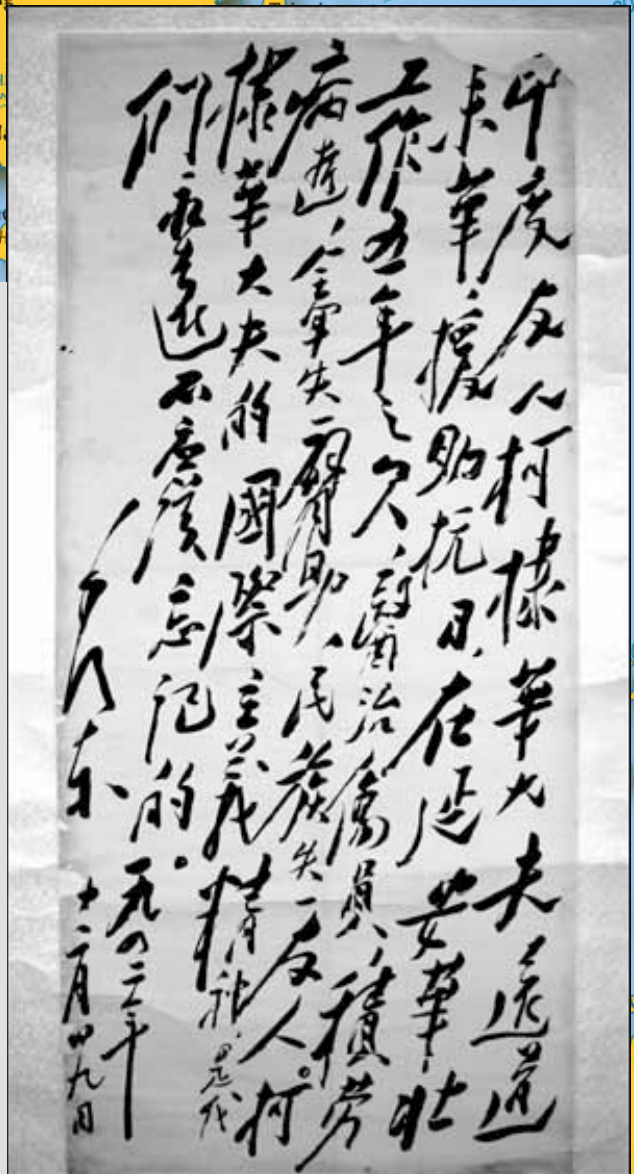 印度友人柯棣華大夫遠道
來華,援助抗日,在延安華北
工作五年之久,醫治傷員,積勞
病逝,全軍失一臂助,民族失一友人。柯
棣華大夫的國際主義精神,是我
們永遠不應該忘記的。
毛澤東
一九四二年
十二月廿九日